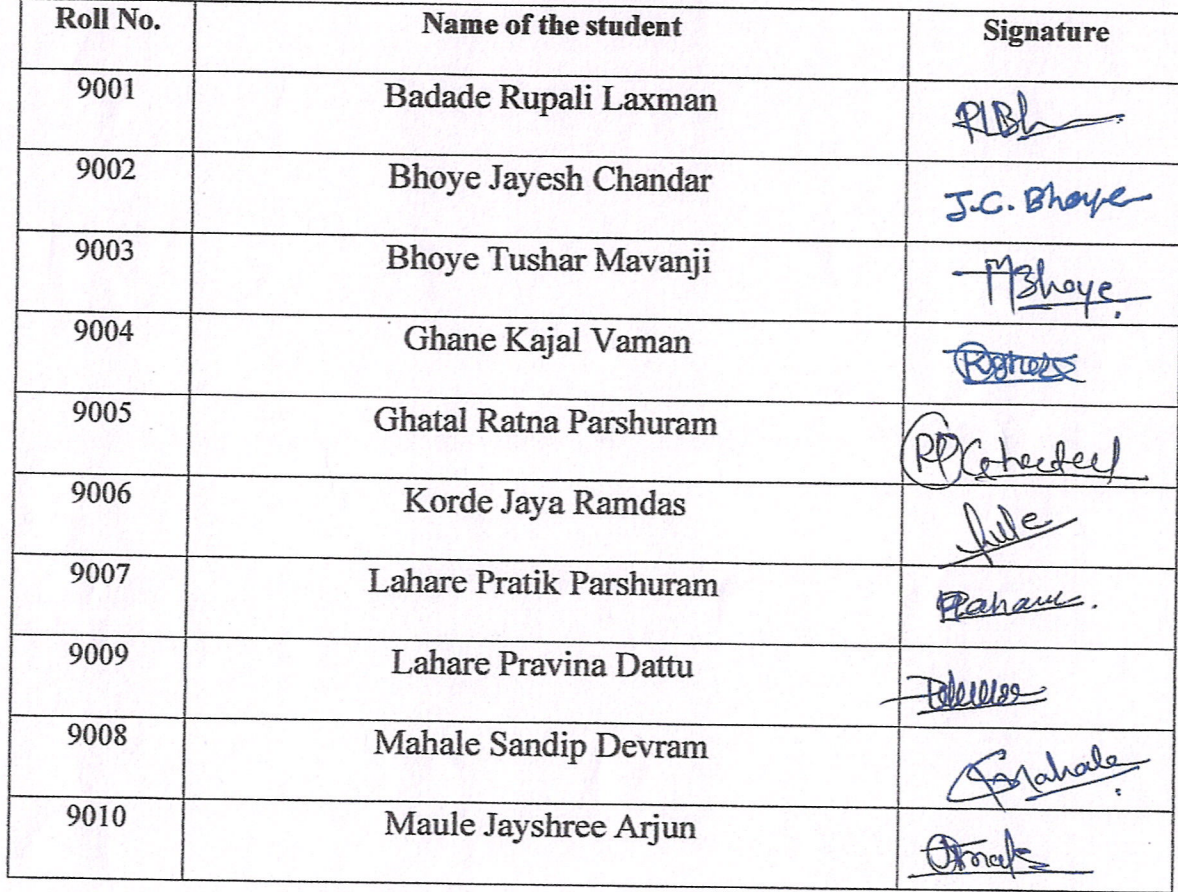 Roll No. Name of the student Signature
9001 Badade Rupali Laxman
9002 Bhoye Jayesh Chandar J.C. Bhoye
9003 Bhoye Tushar Mavanji Bhoye
9004 Ghane Kajal Vaman
9005 Ghatal Ratna Parshuram RP
9006 Korde Jaya Ramdas
9007 Lahare Pratik Parshuram
9009 Lahare Pravina Dattu
9008 Mahale Sandip Devram Mahale
9010 Maule Jayshree Arjun